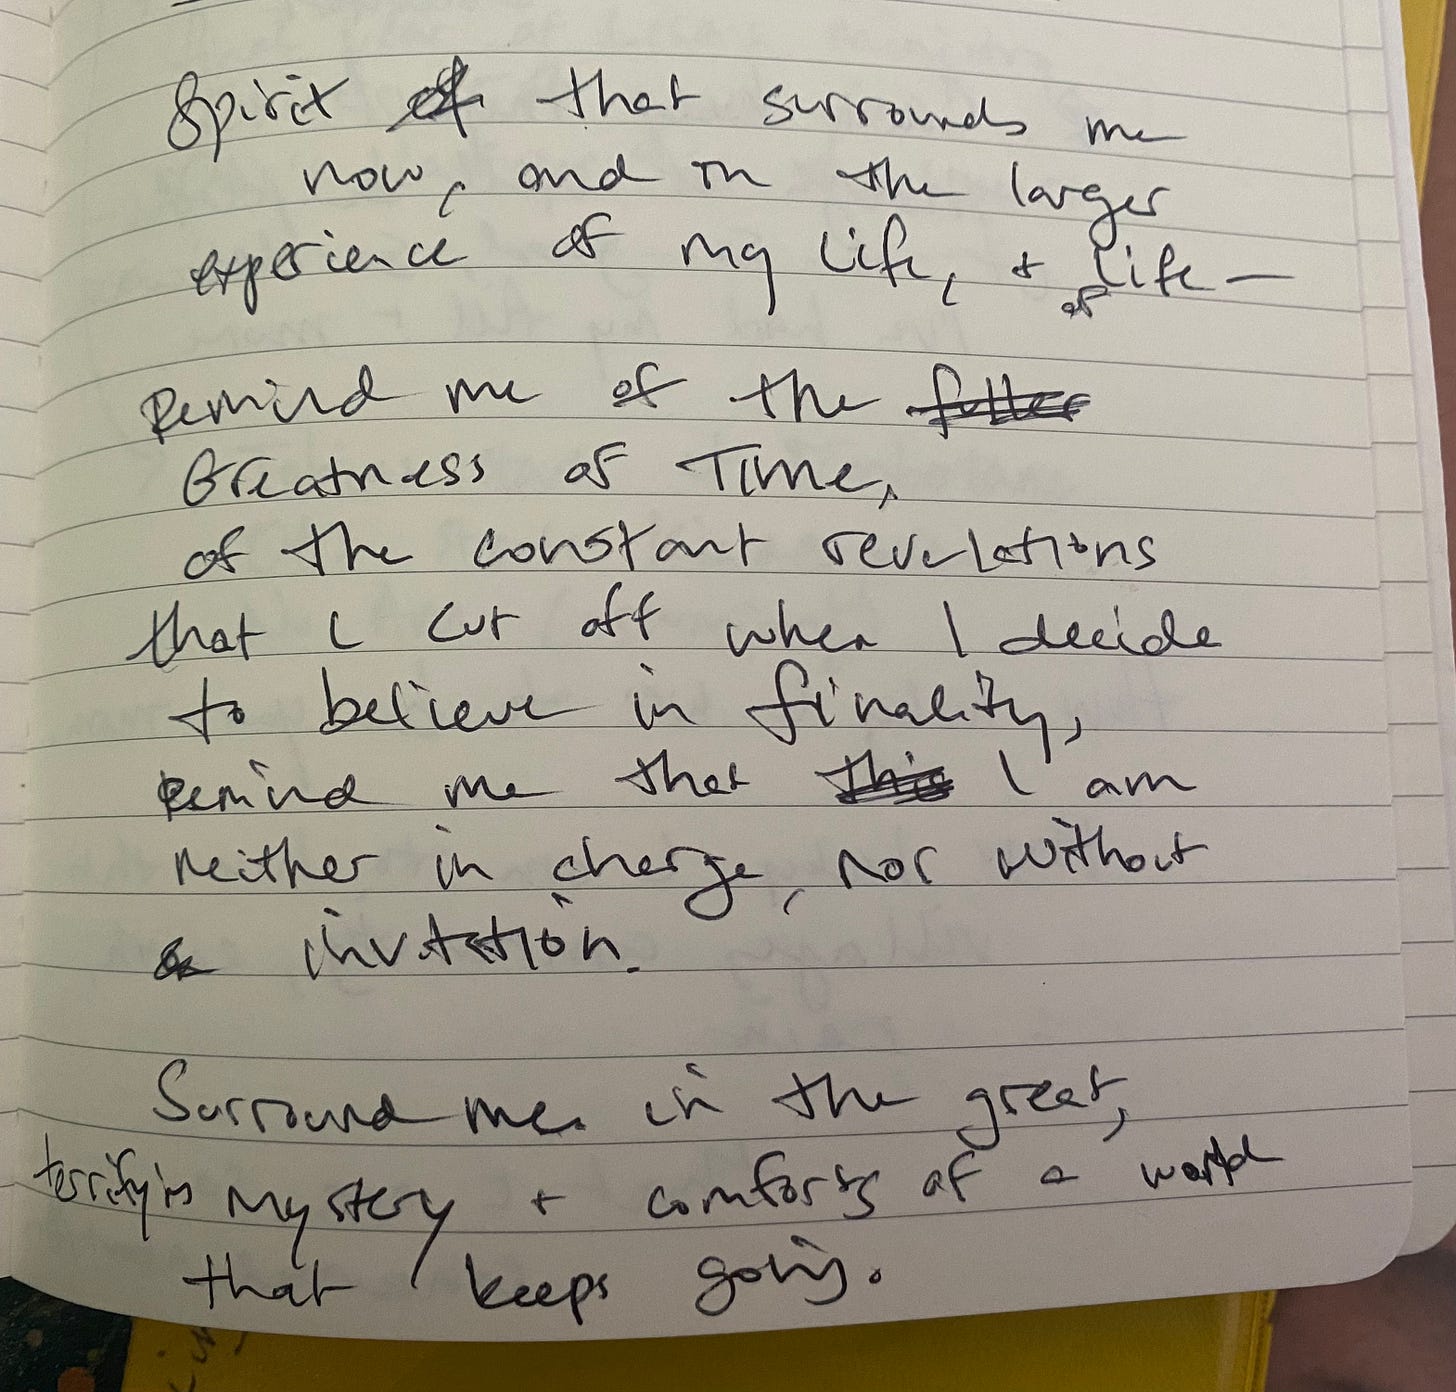 Spirit that surrounds me
now, and in the larger
experience of my life, + of life —
Remind me of the
Greatness of Time,
of the constant revelations
that I cut off when I decide
to believe in finality,
remind me that I am
neither in charge, nor without
invitation.
Surround me in the great,
terrifying mystery + comforts of a world
that keeps going.